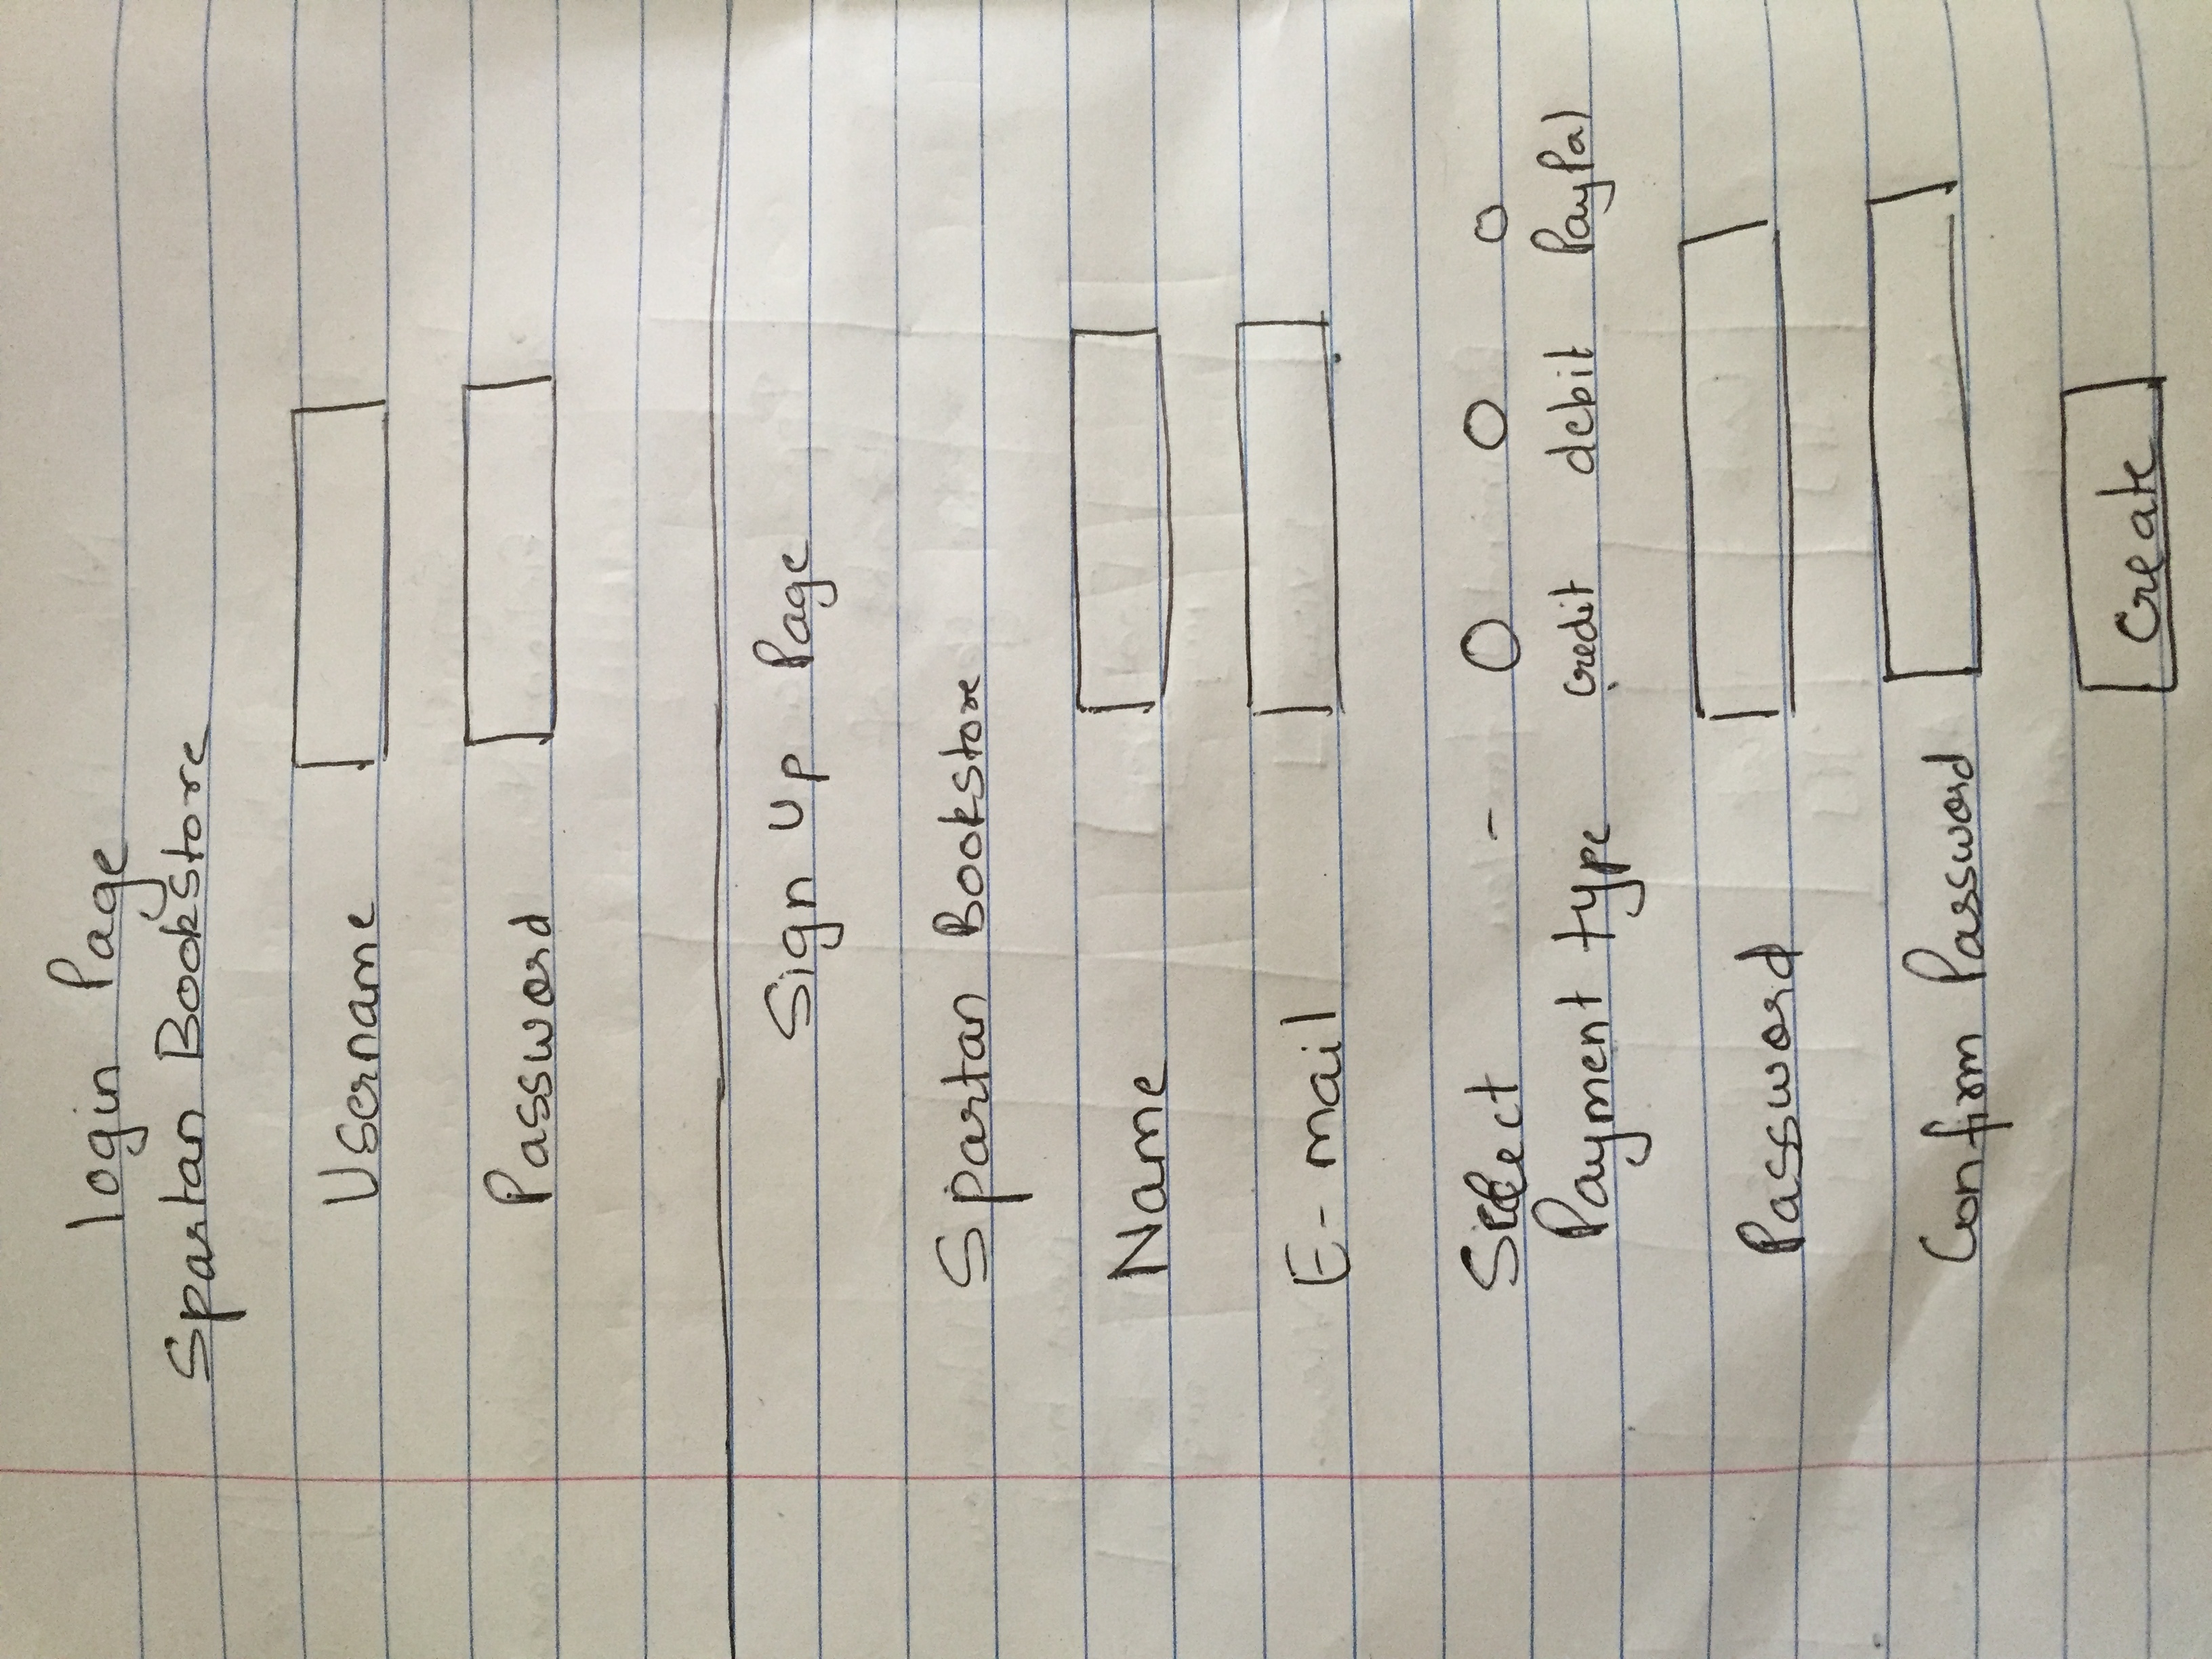 login Page
Spartan Bookstore
Username
Password
Sign Up Page
Spartan Bookstore
Name
E-mail
Select -
Payment type credit debit PayPal
Password
Confirm Password
Create